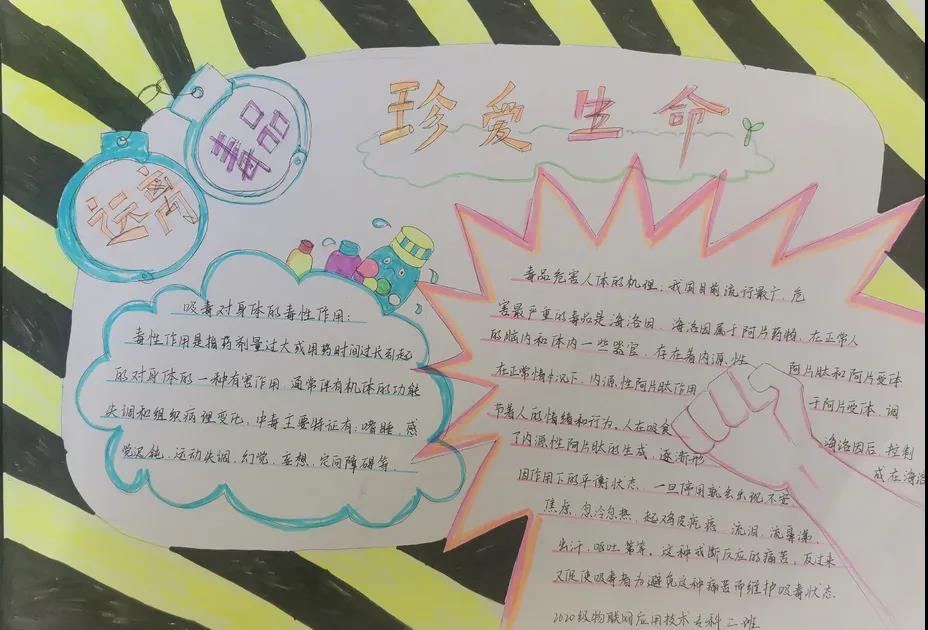 珍爱生命
远离
毒品
吸毒对身体的毒性作用:
毒性作用是指药剂量过大或用药时间过长引起
的对身体的一种有害作用,通常伴有机体的功能
失调和组织病理变化,中毒主要特征有:嗜睡、感
觉迟钝、运动失调、幻觉、妄想、定向障碍等
毒品危害人体的机理:我国目前流行最广、危
害最严重的毒品是海洛因,海洛因属于阿片药物,在正常人
的脑内和体内一些器官,存在着内源性 阿片肽和阿片受体
在正常情况下,内源性阿片肽作用 于阿片受体,调
节着人的情绪和行为,人在吸食 海洛因后,抑制
了内源性阿片肽的生成,逐渐形 成在海洛
因作用下的平衡状态,一旦停用就会出现不安
焦虑、忽冷忽热、起鸡皮疙瘩、流泪、流鼻涕、
出汗、呕吐等等。这种戒断反应的痛苦,反过来
又促使吸毒者为避免这种痛苦而维护吸毒状态.
2020级物联网应用技术专科二班